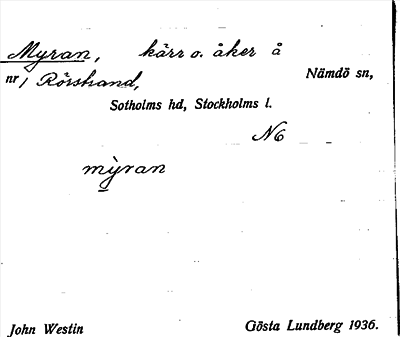 Myran, kärr o. åker å
nr 1 Rörstrand, Nämdö sn,
Sotholms hd, Stockholms l.
N6
mỳran
John Westin Gösta Lundberg 1936.